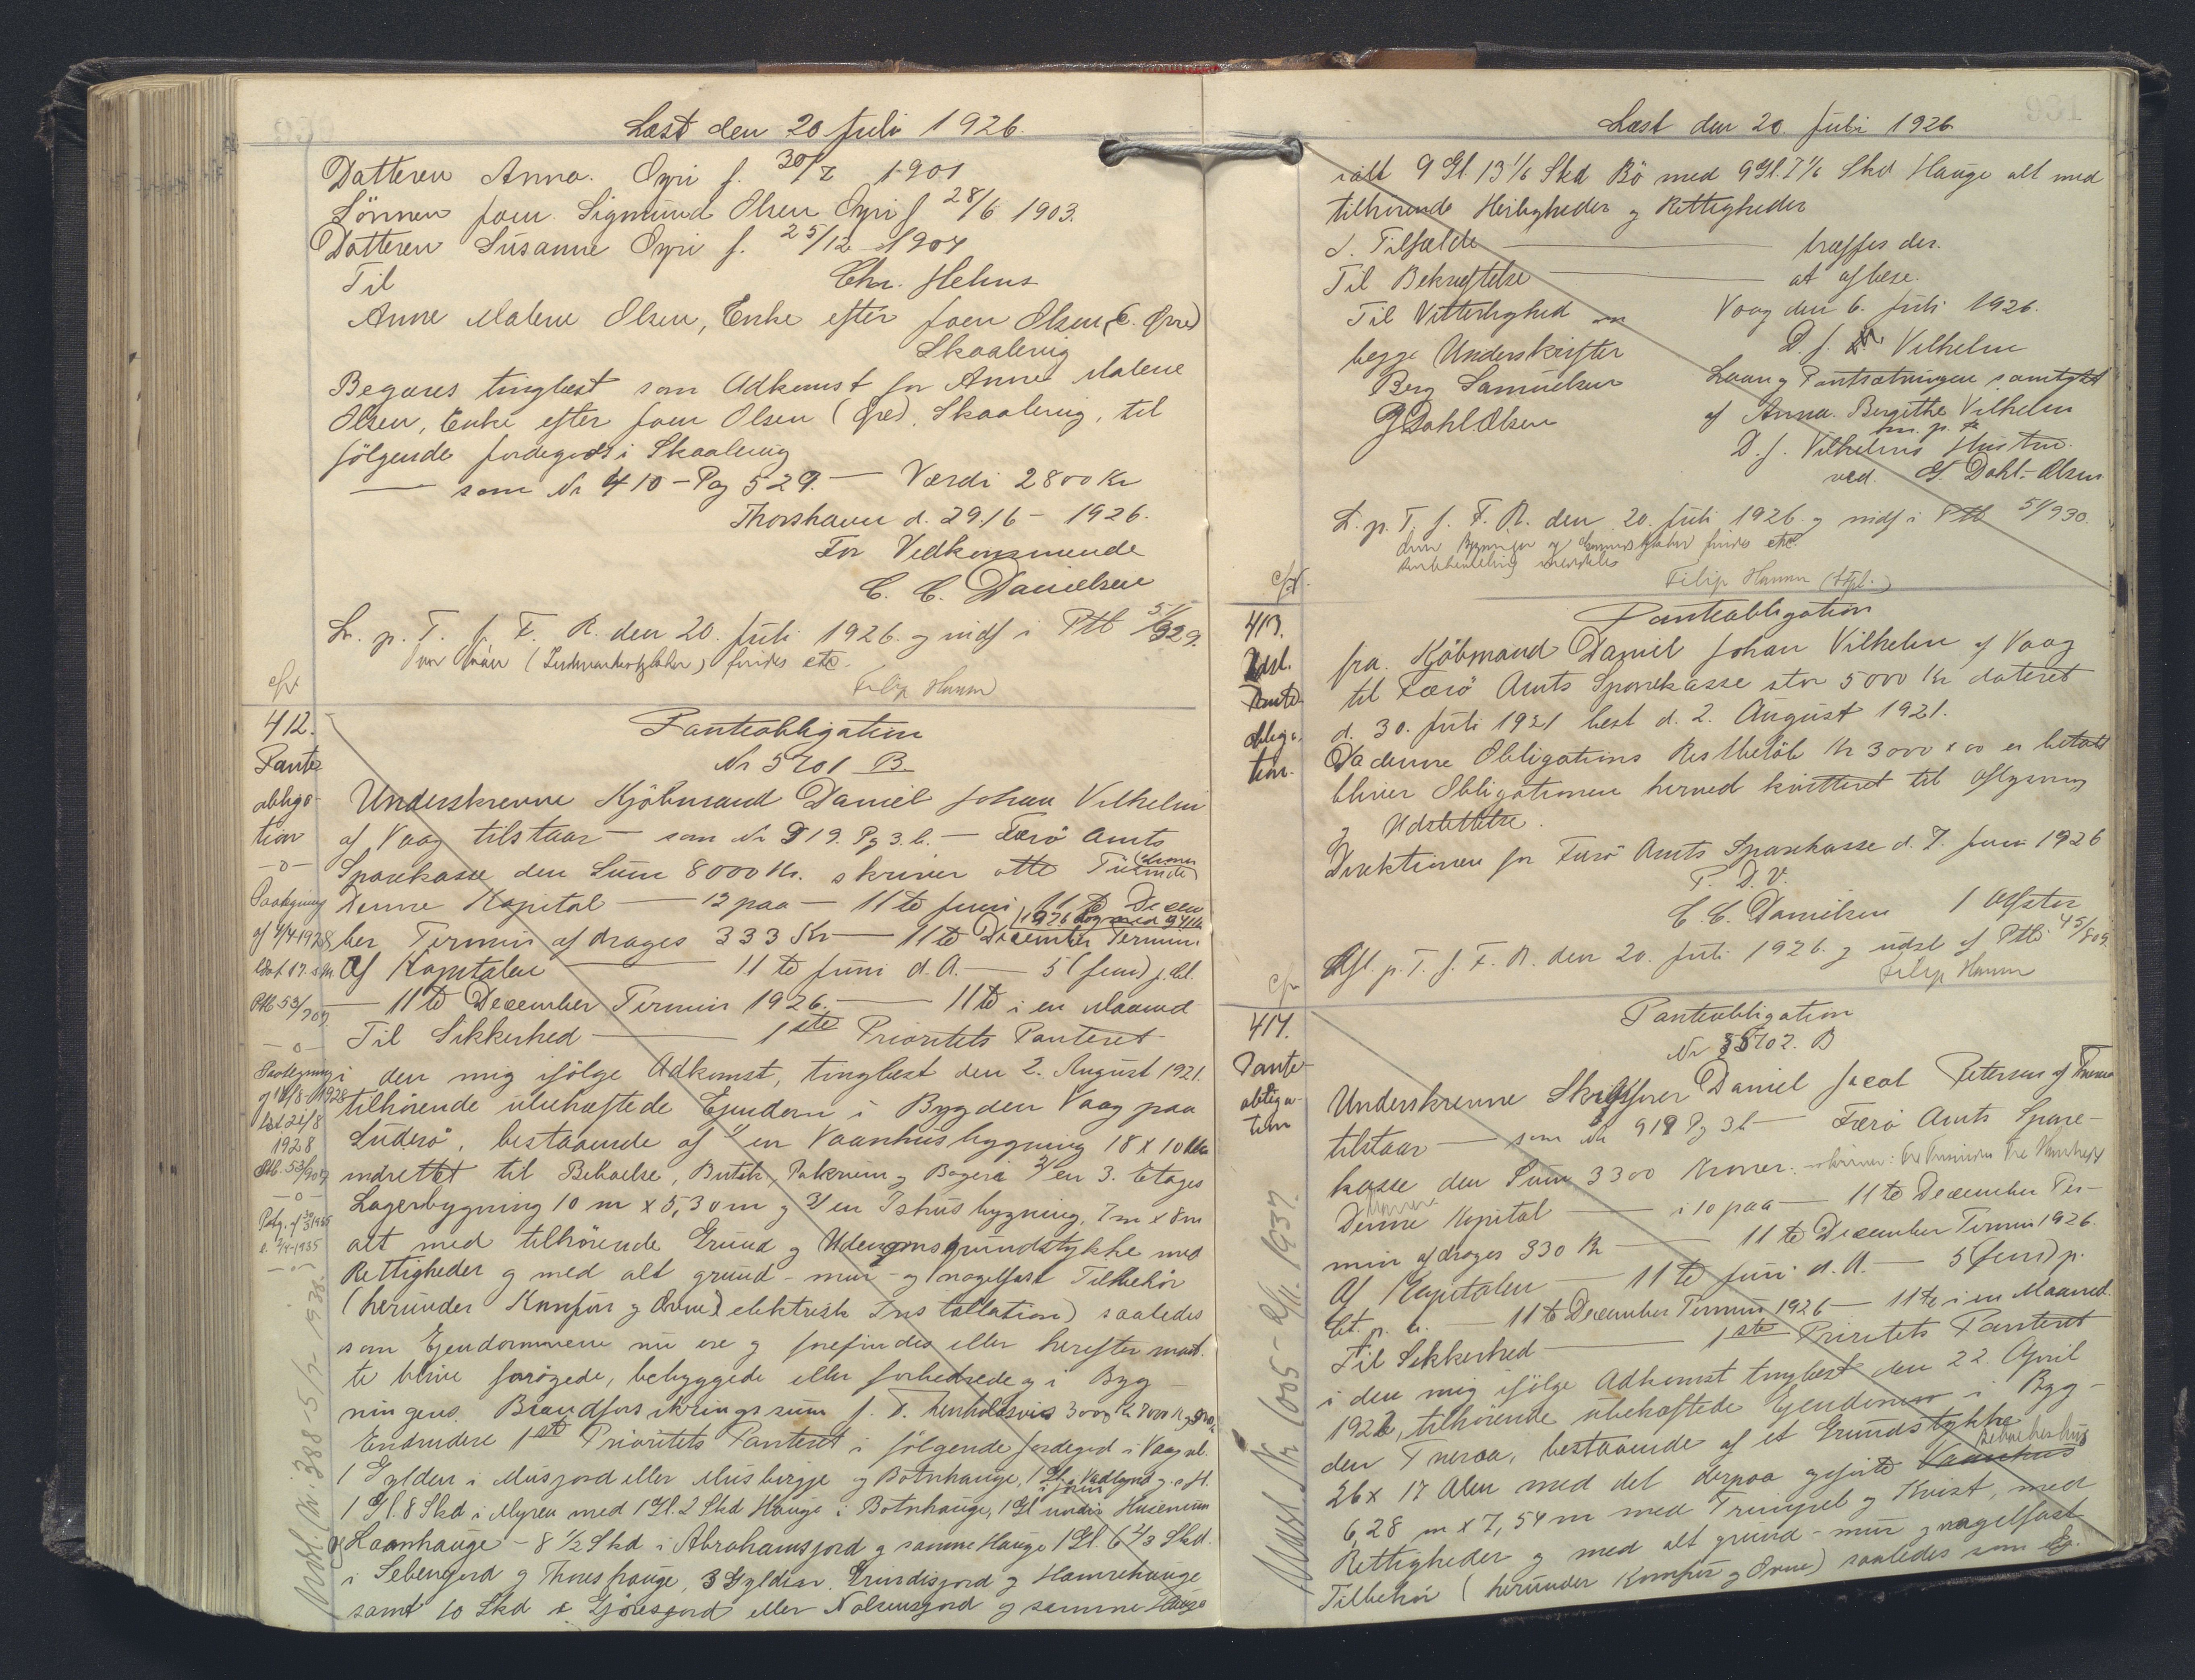 Læst den 20 Juli 1926.
Datteren Anna Øyri f. 30/7 1901
Sönnen Joen Sigmund Olsen Øyri f 28/6 1903.
Datteren Susanne Øyri f. 25/12 1904
Til Chr. Helms
Anne Malene Olsen, Enke efter Joen Olsen,
Skaalevig
Begæres tinglæst som Adkomst for Anne Malene
Olsen, Enke efter Joen Olsen Skaalevig, til
følgende Jordegods i Skaalevig
— som Nr 410 - Pag 529. — Værdi 2800 Kr
Thorshavn d. 29/6 - 1926.
For Vedkommende
C. C. Danielsen
L. p. T. f. F. R. den 20. Juli 1926. g indf i Ptb 51/929.
findes etc.
Filip Hamm
cfr
412.
Pante
obliga-
tion
-o-
Paategning
af 4/4 1928
læst 17. s.M.
Ptb 53/707
-o-
Paategning
læst 21/8
1928
Ptb. 53/907
-o-
Panteobligation
Nr 5701 B.
Underskrevne Kjöbmand Daniel Johan Vilhelm
af Vaag tilstaar — som Nr 919. Pg 3.b. — Færö Amts
Sparekasse den Sum 8000 Kr. skriver otte Tusinde Kroner
Denne Kapital — 12 paa — 11te Juni 11te Decem
ber Termin afdrages 333 Kr — 11te December Termin
1926
Af Kapitalen — 11te Juni d. A. — 5 (fem) p. Ct.
— 11te December Termin 1926. — 11te i en Maaned
Til Sikkerhed — 1ste Prioritets Panteret
i den mig ifölge Adkomst, tinglæst den 2. August 1921.
tilhörende ubehæftede Ejendom i Bygden Vaag paa
Suderö, bestaaende af 1/ en Vaanhusbygning 18 x 10 Alen
indrettet til Beboelse, Butik, Pakrum g Bageri 2/ en 3. Etages
Lagerbygning 10 m x 5,30 m g 3/ en Ishusbygning, 7 m x 8 m
alt med tilhörende Grund g Udenomsgrundstykke med
Rettigheder g med alt grund- mur- og nagelfast Tilbehör
(herunder Komfur g Ovne) elektrisk Installation) saaledes
som Ejendommene nu ere g forefindes eller herefter maat.
te blive forögede, bebyggede eller forbedrede g i Byg-
ningens Brandforsikringssum f. T. henholdsvis 3000 Kr 7000 Kr
Endvidere 1ste Prioritets Panteret i fölgende Jordegods i Vaag
1 Gylden i Musjord eller Musbrygge og Botnhauge,
1 Gl. 8 Skd i Myren med 1 Gl. 2 Skd Hauge i Botnhauge, 1 Gl under
g Laanhauge - 8 1/2 Skd i Abrahamsjord g samme Hauge 1 Gl. 6 2/3 Skd.
i Sebengjerd g Thoreshauge, 3 Gylden Grundisjord g Hamrehauge
samt 10 Skd i Gjöresjord eller Nolsensjord g samme Hauge
Udsl. Nr. 388 - 5/7 - 1938.
Læst den 20. Juli 1926.
ialt 9 Gl 13 1/6 Skd Bö med 9 Gl. 7 1/6 Skd Hauge alt med
tilhörende Herligheder g Rettigheder
I Tilfælde — træffes der.
Til Bekræftelse — at aflæse.
Til Vitterlighed om Vaag den 6. Juli 1926.
begge Underskrifter D. J. Vilhelm
Berg Samuelsen Laan g Pantsætningen samtykt
G Dahl. Olsen af Anna Bergithe Vilhelm
m. p. P.
D. J. Vilhelms Hustru.
ved. G. Dahl-Olsen
L. p. T. f. F. R. den 20. Juli 1926. g indf i Ptb 51/930.
Filip Hamm
cfr.
413.
Udsl.
Pante
obliga-
tion.
Panteobligation
fra Köbmand Daniel Johan Vilhelm af Vaag
til Færö Amts Sparekasse stor 5000 Kr dateret
d. 30. Juli 1921 læst d. 2. August 1921.
Da denne Obligations Restbelöb Kr 3000 x 00 er betalt
bliver Obligationen herved kvitteret til Aflysning
g Udslettelse.
Direktionen for Færö Amts Sparekasse d. 7. Juni 1926
P. D. V.
C. C. Danielsen
Afl. p. T. f. F. R. den 20. Juli 1926. g udsl af Ptb 45/809.
Filip Hamm
cfr
414.
Pante-
obliga-
tion
Panteobligation
Nr 5702. B
Underskrevne Skibsförer Daniel Jacob Petersen af Tveraa
tilstaar — som Nr 919 Pg 3b — Færö Amts Spare-
kasse den Sum 3300 Kroner.
Denne Kapital — i 10 paa — 11te December Ter-
min afdrages 330 Kr — 11te December Termin 1926.
Af Kapitalen — 11te Juni d. A. — 5 (fem) p.
Ct. p. a. — 11te December Termin 1926 — 11te i en Maaned.
Til Sikkerhed — 1ste Prioritets Panteret
i den mig ifölge Adkomst tinglæst den 22. April
1926, tilhörende ubehæftede Ejendom i Byg-
den Tveraa, bestaaende af et Grundstykke
26 x 17 Alen med det derpaa opförte Vaanhus Beboelseshus
6,28 m x 7,54 m med Trempel g Kvist, med
Rettigheder g med alt grund- mur g nagelfast
Tilbehör (herunder Komfur g Ovne) saaledes som Ej.
Udsl. Nr 1005 - 2/11. 1937.